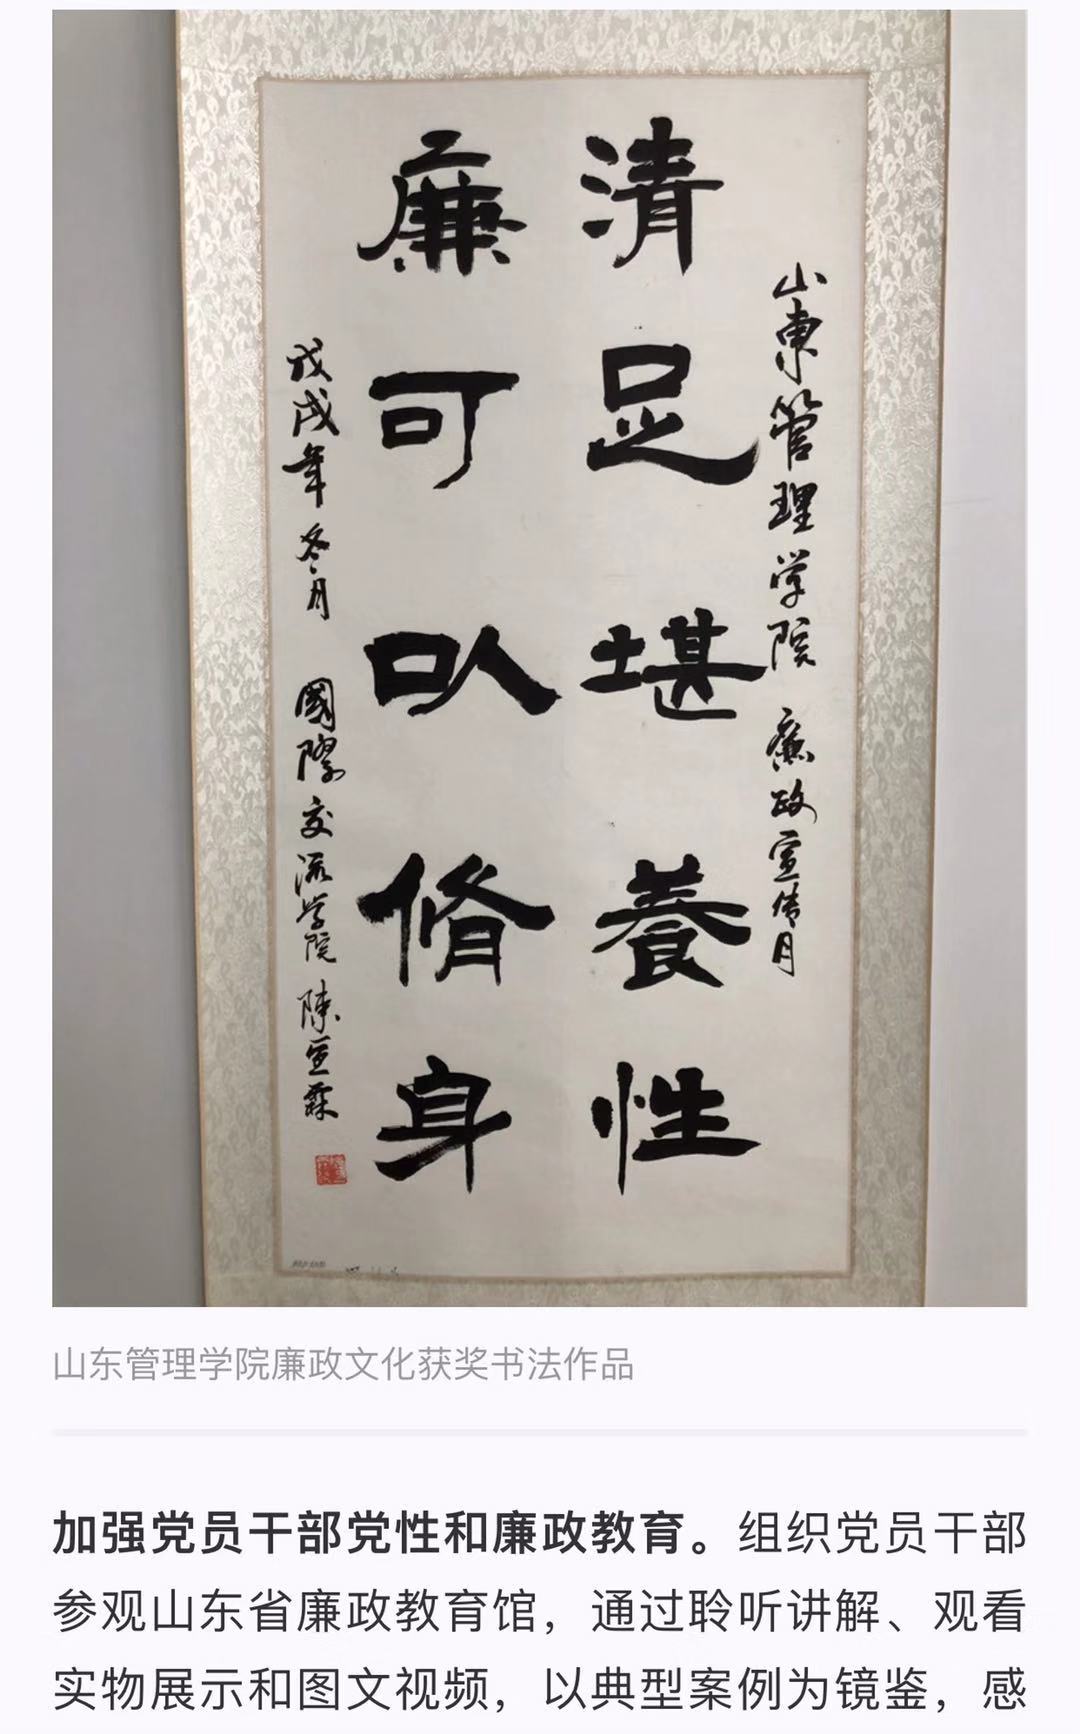 山東管理学院 廉政宣传月
清足堪養性
廉可以脩身
戊戌年冬月 國際交流学院 陳宣霖
山东管理学院廉政文化获奖书法作品
加强党员干部党性和廉政教育。组织党员干部
参观山东省廉政教育馆，通过聆听讲解、观看
实物展示和图文视频，以典型案例为镜鉴，感